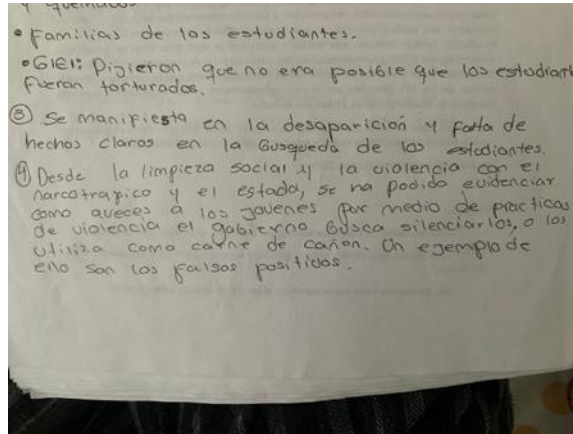 y quemados
• Familias de los estudiantes.
• GIEI: Dijieron que no era posible que los estudiant
fueran torturados.
③ Se manifiesta en la desaparición y falta de
hechos claros en la busqueda de los estudiantes.
④ Desde la limpieza social y la violencia con el
narcotrafico y el estado, se ha podido evidenciar
como aveces a los jovenes por medio de practicas
de violencia el gobierno busca silenciarlos, o los
utiliza como carne de cañon. Un egemplo de
ello son los falsos positivos.